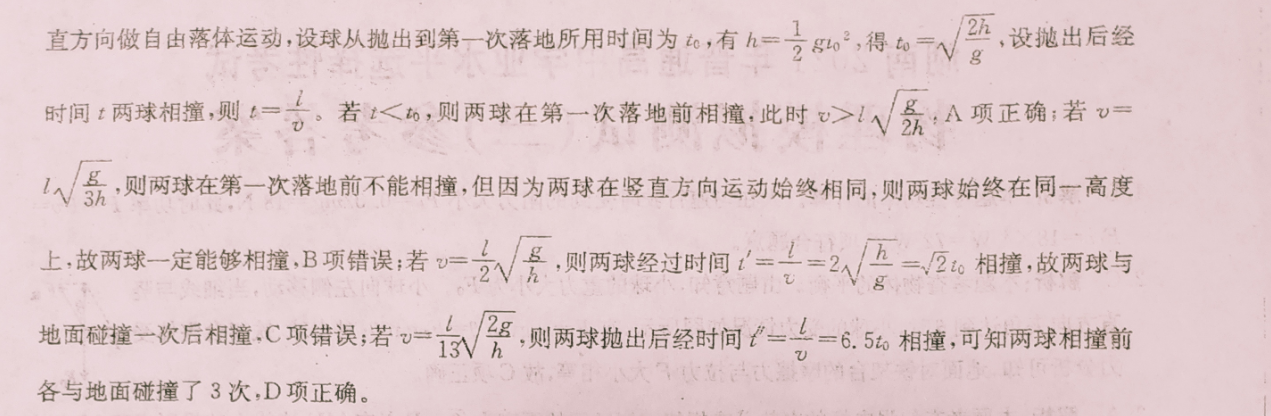 直方向做自由落体运动,设球从抛出到第一次落地所用时间为 t₀,有 h=\frac{1}{2}gt₀²,得 t₀=\sqrt{\frac{2h}{g}},设抛出后经
时间 t 两球相撞,则 t=\frac{l}{v}。若 t<t₀,则两球在第一次落地前相撞,此时 v>l\sqrt{\frac{g}{2h}},A 项正确;若 v=
l\sqrt{\frac{g}{3h}},则两球在第一次落地前不能相撞,但因为两球在竖直方向运动始终相同,则两球始终在同一高度
上,故两球一定能够相撞,B项错误;若 v=\frac{l}{2}\sqrt{\frac{g}{h}},则两球经过时间 t′=\frac{l}{v}=2\sqrt{\frac{h}{g}}=\sqrt{2}t₀ 相撞,故两球与
地面碰撞一次后相撞,C项错误;若 v=\frac{l}{13}\sqrt{\frac{2g}{h}},则两球抛出后经时间 t″=\frac{l}{v}=6.5t₀ 相撞,可知两球相撞前
各与地面碰撞了 3 次,D项正确。